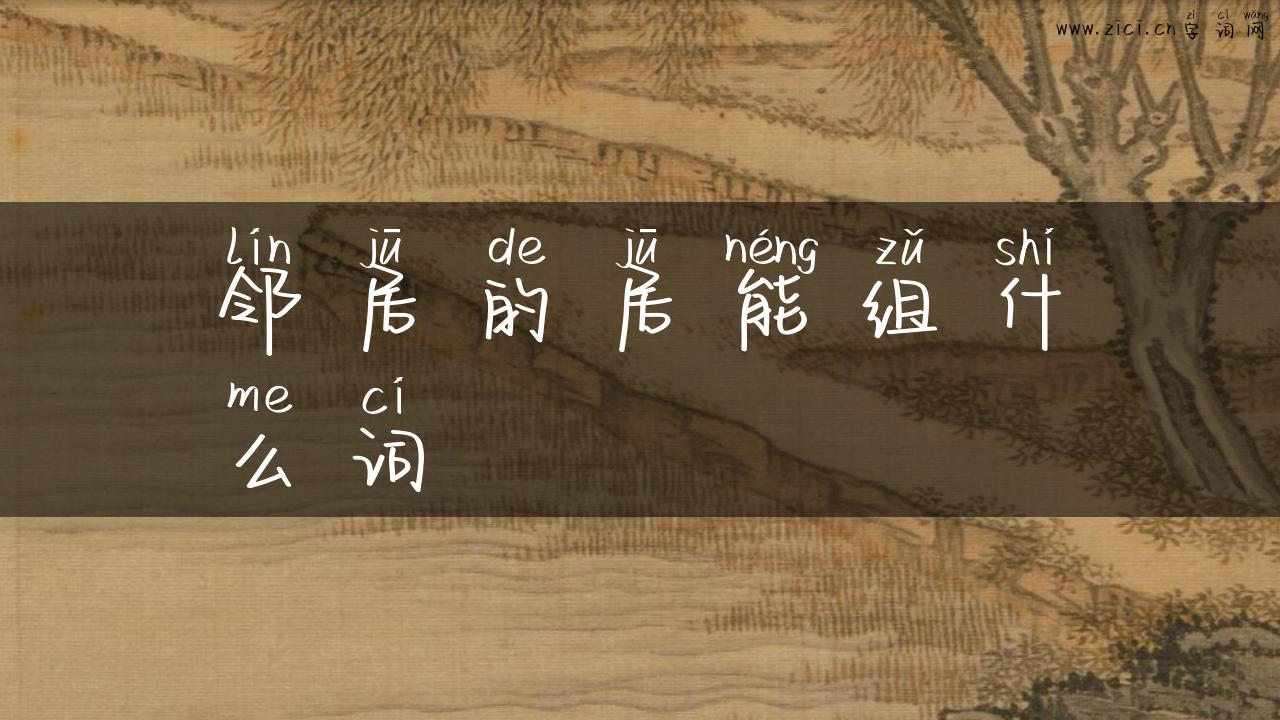 zì cí wǎng
www.zici.cn 字词网
lín jū de jū néng zǔ shí
邻居的居能组什
me cí
么词